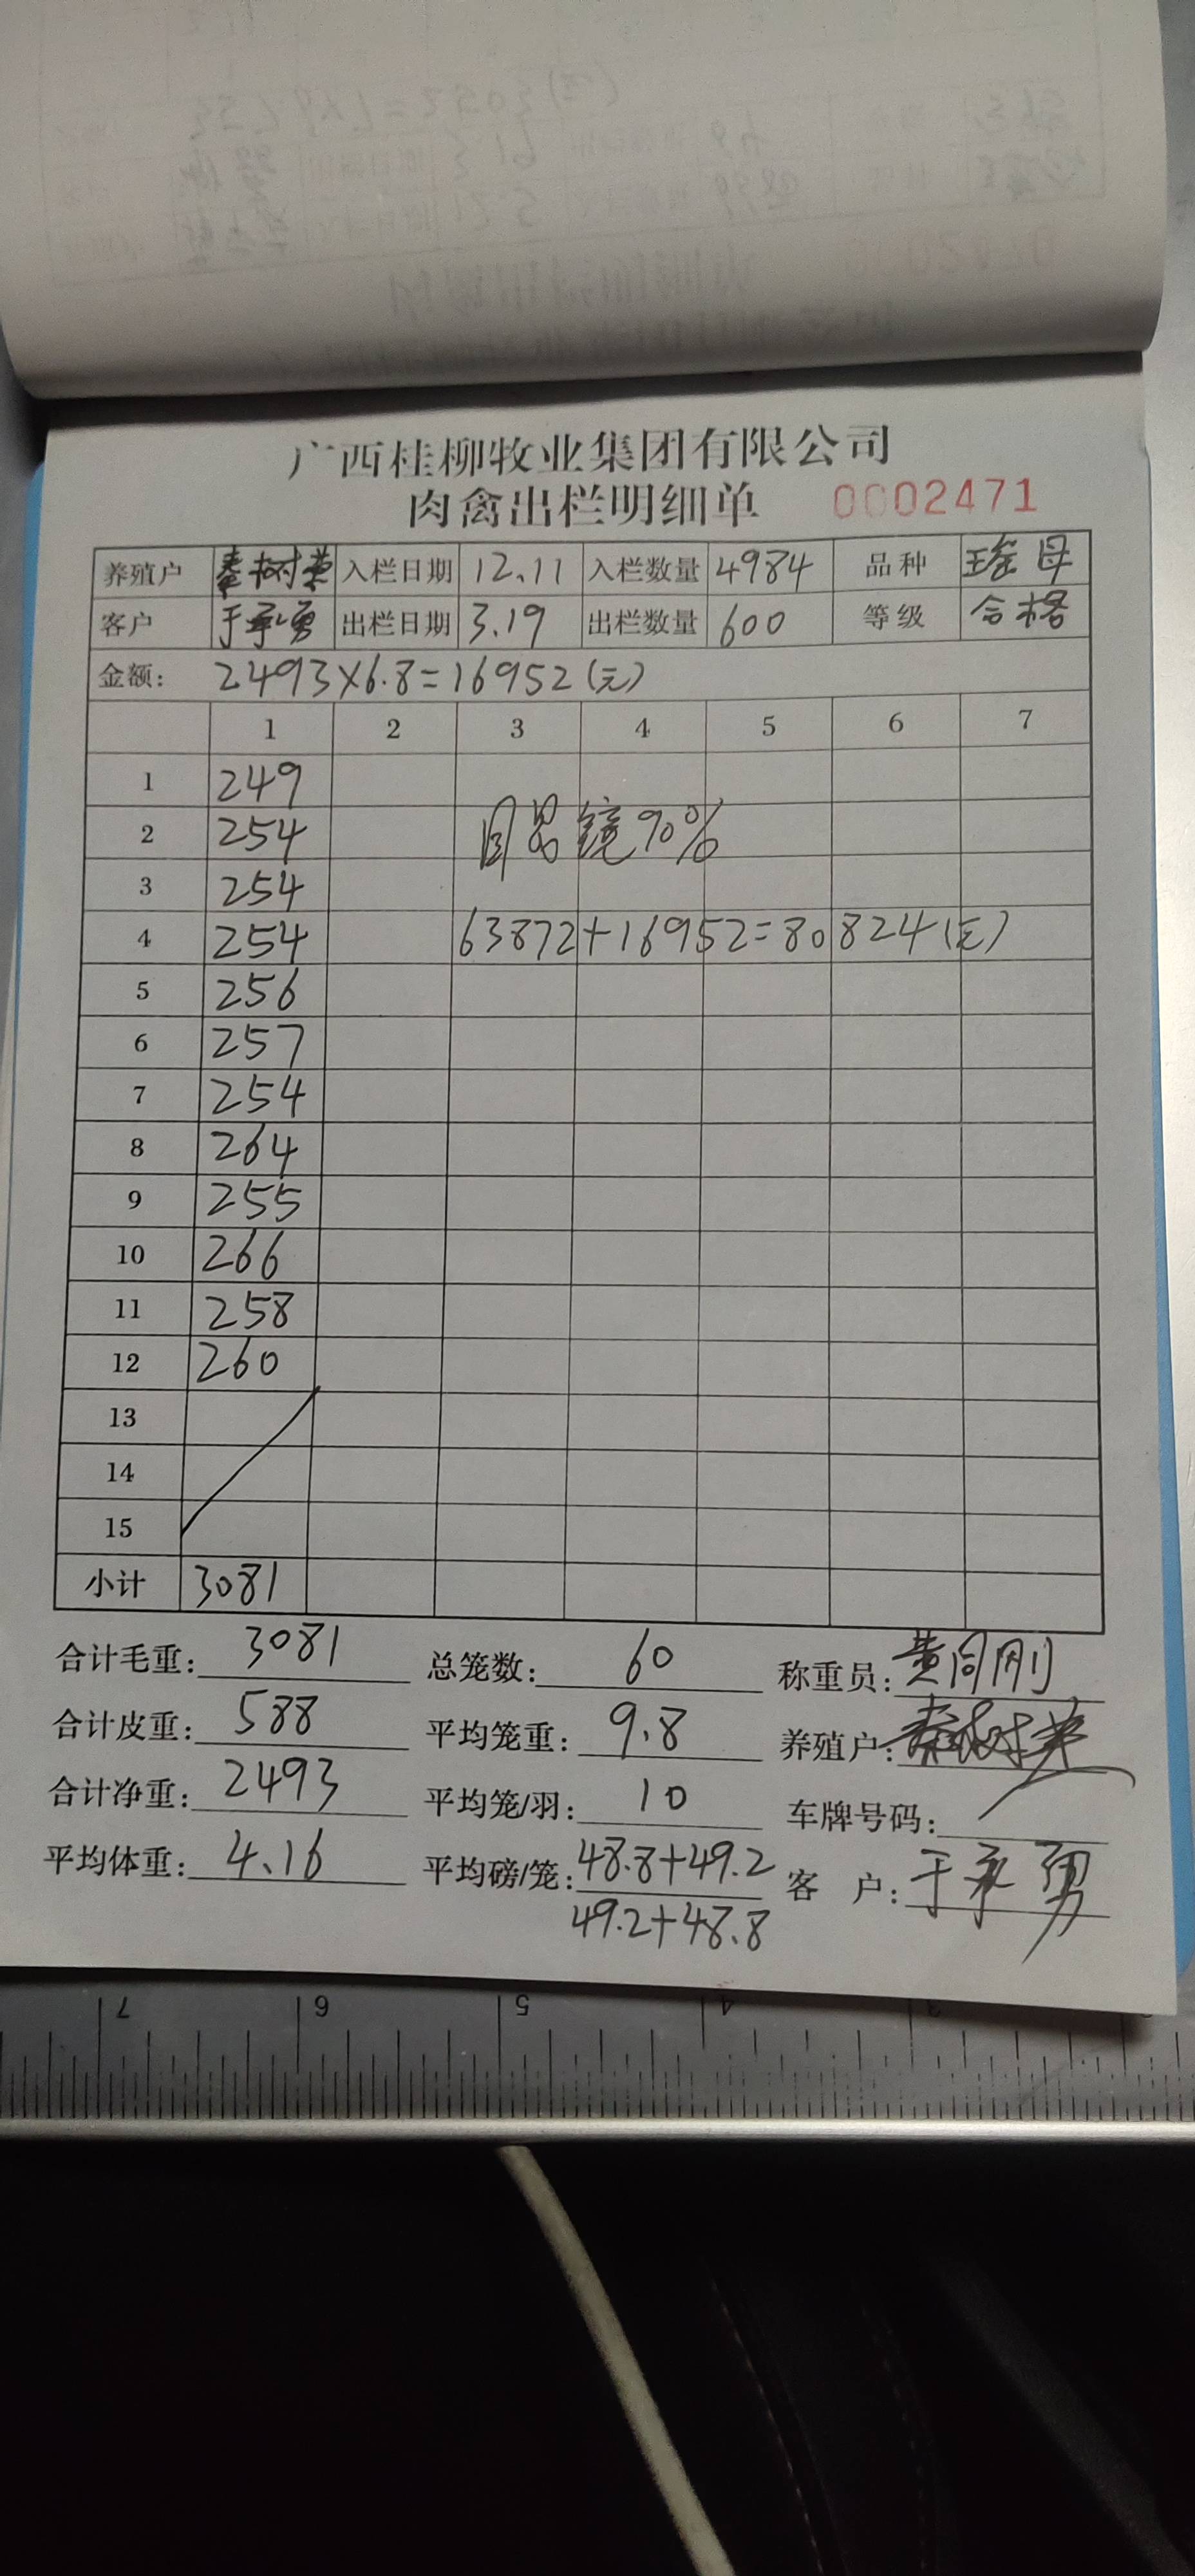 广西桂柳牧业集团有限公司
肉禽出栏明细单 0002471
养殖户 秦树荣 入栏日期 12.11 入栏数量 4984 品种 瑶母
客户 于承勇 出栏日期 3.19 出栏数量 600 等级 合格
金额: 2493×6.8=16952(元)
1 2 3 4 5 6 7
1 249
2 254 90%
3 254
4 254 63872+16952=80824(元)
5 256
6 257
7 254
8 264
9 255
10 266
11 258
12 260
13
14
15
小计 3081
合计毛重: 3081 总笼数: 60 称重员: 黄同刚
合计皮重: 588 平均笼重: 9.8 养殖户: 秦树荣
合计净重: 2493 平均笼/羽: 10 车牌号码:
平均体重: 4.16 平均磅/笼: 48.8+49.2 客 户: 于承勇
49.2+48.8
7 6 5 4 3